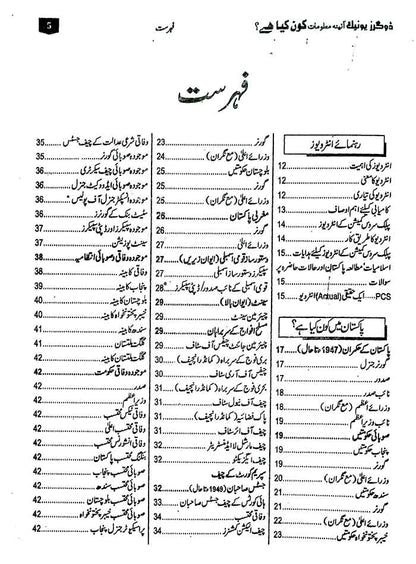 ڈوگرز یونیک آئینہ معلومات کون کیا ہے؟
فہرست
5
فہرست
رہنمائے انٹرویوز
انٹرویو کی اہمیت 12
انٹرویو کا معنی 12
انٹرویو کی تیاری 12
کامیابی کیلئے اہم اوصاف 13
پبلک سروس کمیشن کے انٹرویوز 14
انٹرویو کا طریق کار 14
پبلک سروس کمیشن کے انٹرویوز کیلئے ہدایات 15
اسلامیات، مطالعہ پاکستان اور حالات حاضرہ پر
سوالات 15
PCS ایک حقیقی (Actual) انٹرویو 15
پاکستان میں کون کیا ہے؟
پاکستان کے حکمران (1947ء تا حال) 17
گورنر جنرل 17
صدور 17
نائب صدر 18
وزرائے اعظم (مع نگران) 18
نائب وزیر اعظم 19
صوبائی حکومتیں 19
پنجاب حکومتیں 19
گورنر 19
وزرائے اعلیٰ (مع نگران) 20
سندھ حکومتیں 21
گورنر 21
وزرائے اعلیٰ (مع نگران) 22
خیبر پختونخواہ حکومتیں 23
گورنر 23
وزرائے اعلیٰ (مع نگران) 24
بلوچستان حکومتیں 25
گورنر 25
وزرائے اعلیٰ (مع نگران) 26
مغربی پاکستان 26
گورنر 26
وزرائے اعلیٰ 27
دستور ساز و قومی اسمبلی (ایوان زیریں) 27
سپیکرز دستور ساز اسمبلی 27
قومی اسمبلی کے نائب صدور / ڈپٹی سپیکرز 28
سینٹ (ایوان بالا) 29
چیئرمین سینٹ 29
مسلح افواج کے سربراہان 29
چیئرمین جوائنٹ چیفس آف سٹاف 29
بری فوج کے سربراہ (کمانڈر انچیف) 30
چیف آف آرمی سٹاف 30
بحری فوج کے سربراہ (کمانڈر انچیف) 30
چیف آف نیول سٹاف 31
پاک فضائیہ (کمانڈر انچیف) 31
چیف آف ائر سٹاف 31
چیف مارشل لاء ایڈمنسٹریٹر 32
چیف ایگزیکٹو 32
سپریم کورٹ کے چیف
جسٹس صاحبان (1949ء تا حال) 32
ہائی کورٹس کے چیف جسٹس صاحبان 33
وفاقی محتسب 34
چیف الیکشن کمشنرز 34
وفاقی شرعی عدالت کے چیف جسٹس 35
موجودہ صوبائی گورنر 35
موجودہ صوبائی چیف سیکرٹری 36
موجودہ صوبائی ایڈووکیٹ جنرل 36
موجودہ انسپکٹر جنرل آف پولیس 36
سٹیٹ بنک کے گورنرز 36
موجودہ سپیکرز اور ڈپٹی سپیکرز 37
سینٹ پوزیشن 37
موجودہ وفاقی و صوبائی انتظامیہ 38
وفاقی کابینہ 38
پنجاب کابینہ 39
بلوچستان کابینہ 40
خیبر پختونخواہ کابینہ 40
سندھ کابینہ 41
گلگت بلتستان کابینہ 41
گلگت بلتستان 42
موجودہ وفاقی حکومت 42
صدور 42
وزیر اعظم 42
وفاقی ٹیکس محتسب 42
وفاقی محتسب اعلیٰ 42
وفاقی انشورنس محتسب 42
بینکنگ محتسب پاکستان 42
صوبائی محتسب پنجاب 42
صوبائی محتسب سندھ 42
صوبائی محتسب بلوچستان 42
صوبائی محتسب خیبر پختونخواہ 42
پراسیکیوٹر جنرل پنجاب 42